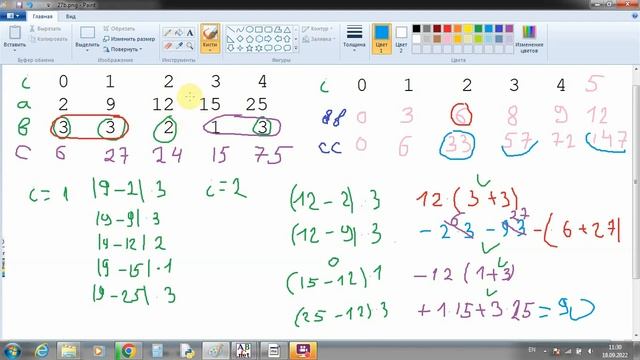 27b.png - Paint
Главная
Вид
Вставить
Выделить
Обрезать
Изменить размер
Повернуть
Кисти
Контур
Заливка
Толщина
Цвет 1
Цвет 2
Изменение цветов
Буфер обмена
Изображение
Инструменты
Фигуры
Цвета
i 0 1 2 3 4
a 2 9 12 15 25
b 3 3 2 1 3
c 6 27 24 15 75
i 0 1 2 3 4 5
bb 0 3 6 8 9 12
cc 0 6 33 57 72 147
i = 1
|9 - 2| · 3
|9 - 9| · 3
|9 - 12| 2
|9 - 15| · 1
|9 - 25| · 3
i = 2
(12 - 2) · 3
(12 - 9) · 3
0
(15 - 12) 1
(25 - 12) · 3
12 (3 + 3)
6 27
- 2 · 3 - 9 · 3 - (6 + 27)
- 12 (1 + 3)
+ 1 · 15 + 3 · 25 = 90
EN
11:30
18.09.2022